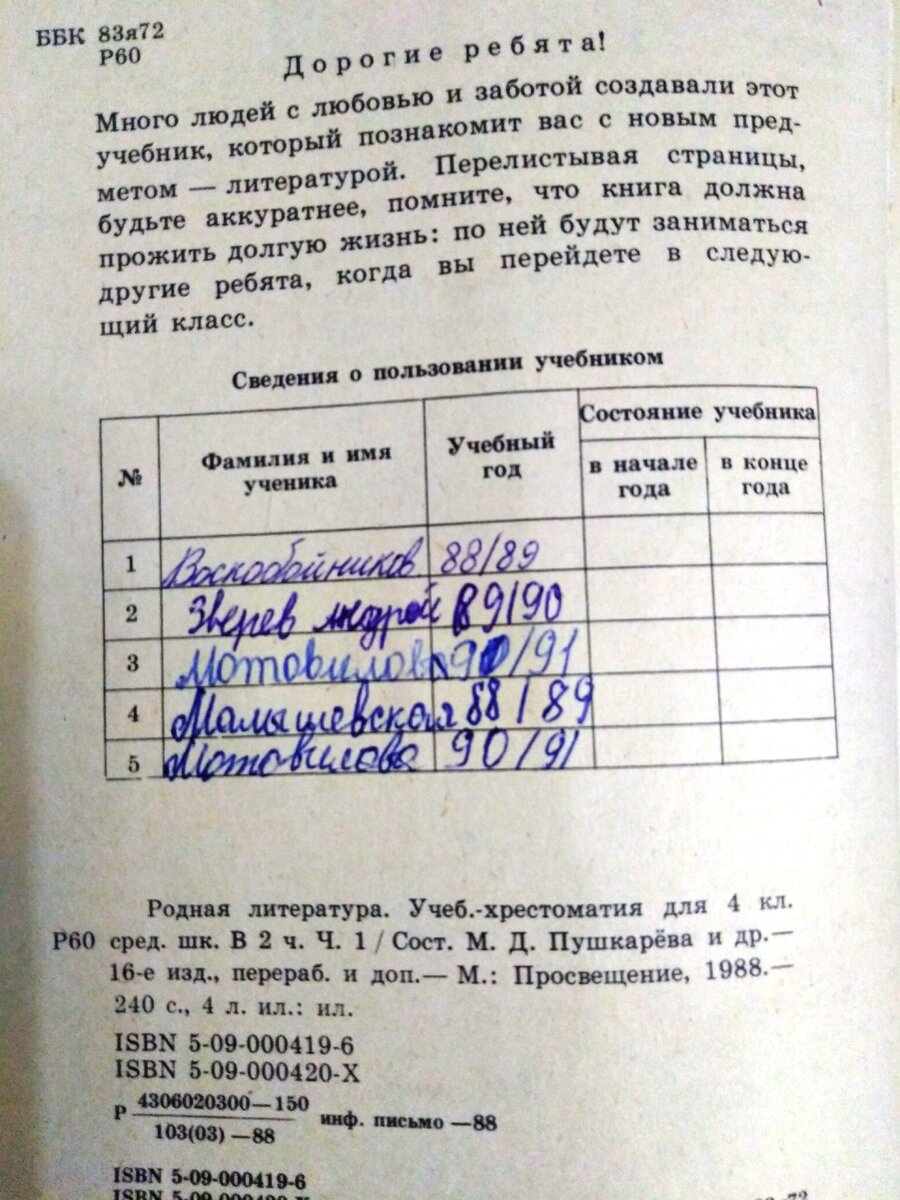 ББК 83я72
Р60
Дорогие ребята!
Много людей с любовью и заботой создавали этот
учебник, который познакомит вас с новым пред-
метом — литературой. Перелистывая страницы,
будьте аккуратнее, помните, что книга должна
прожить долгую жизнь: по ней будут заниматься
другие ребята, когда вы перейдете в следую-
щий класс.
Сведения о пользовании учебником
№
Фамилия и имя
ученика
Учебный
год
Состояние учебника
в начале
года
в конце
года
1 Воскобойников 88/89
2 Зверев Андрей 89/90
3 Мотовилова 90/91
4 Малышевская 88/89
5 Мотовилова 90/91
Родная литература. Учеб.-хрестоматия для 4 кл.
Р60 сред. шк. В 2 ч. Ч. 1 / Сост. М. Д. Пушкарёва и др.—
16-е изд., перераб. и доп.— М.: Просвещение, 1988.—
240 с., 4 л. ил.: ил.
ISBN 5-09-000419-6
ISBN 5-09-000420-X
Р 4306020300—150
103(03)—88
инф. письмо —88
ISBN 5-09-000419-6